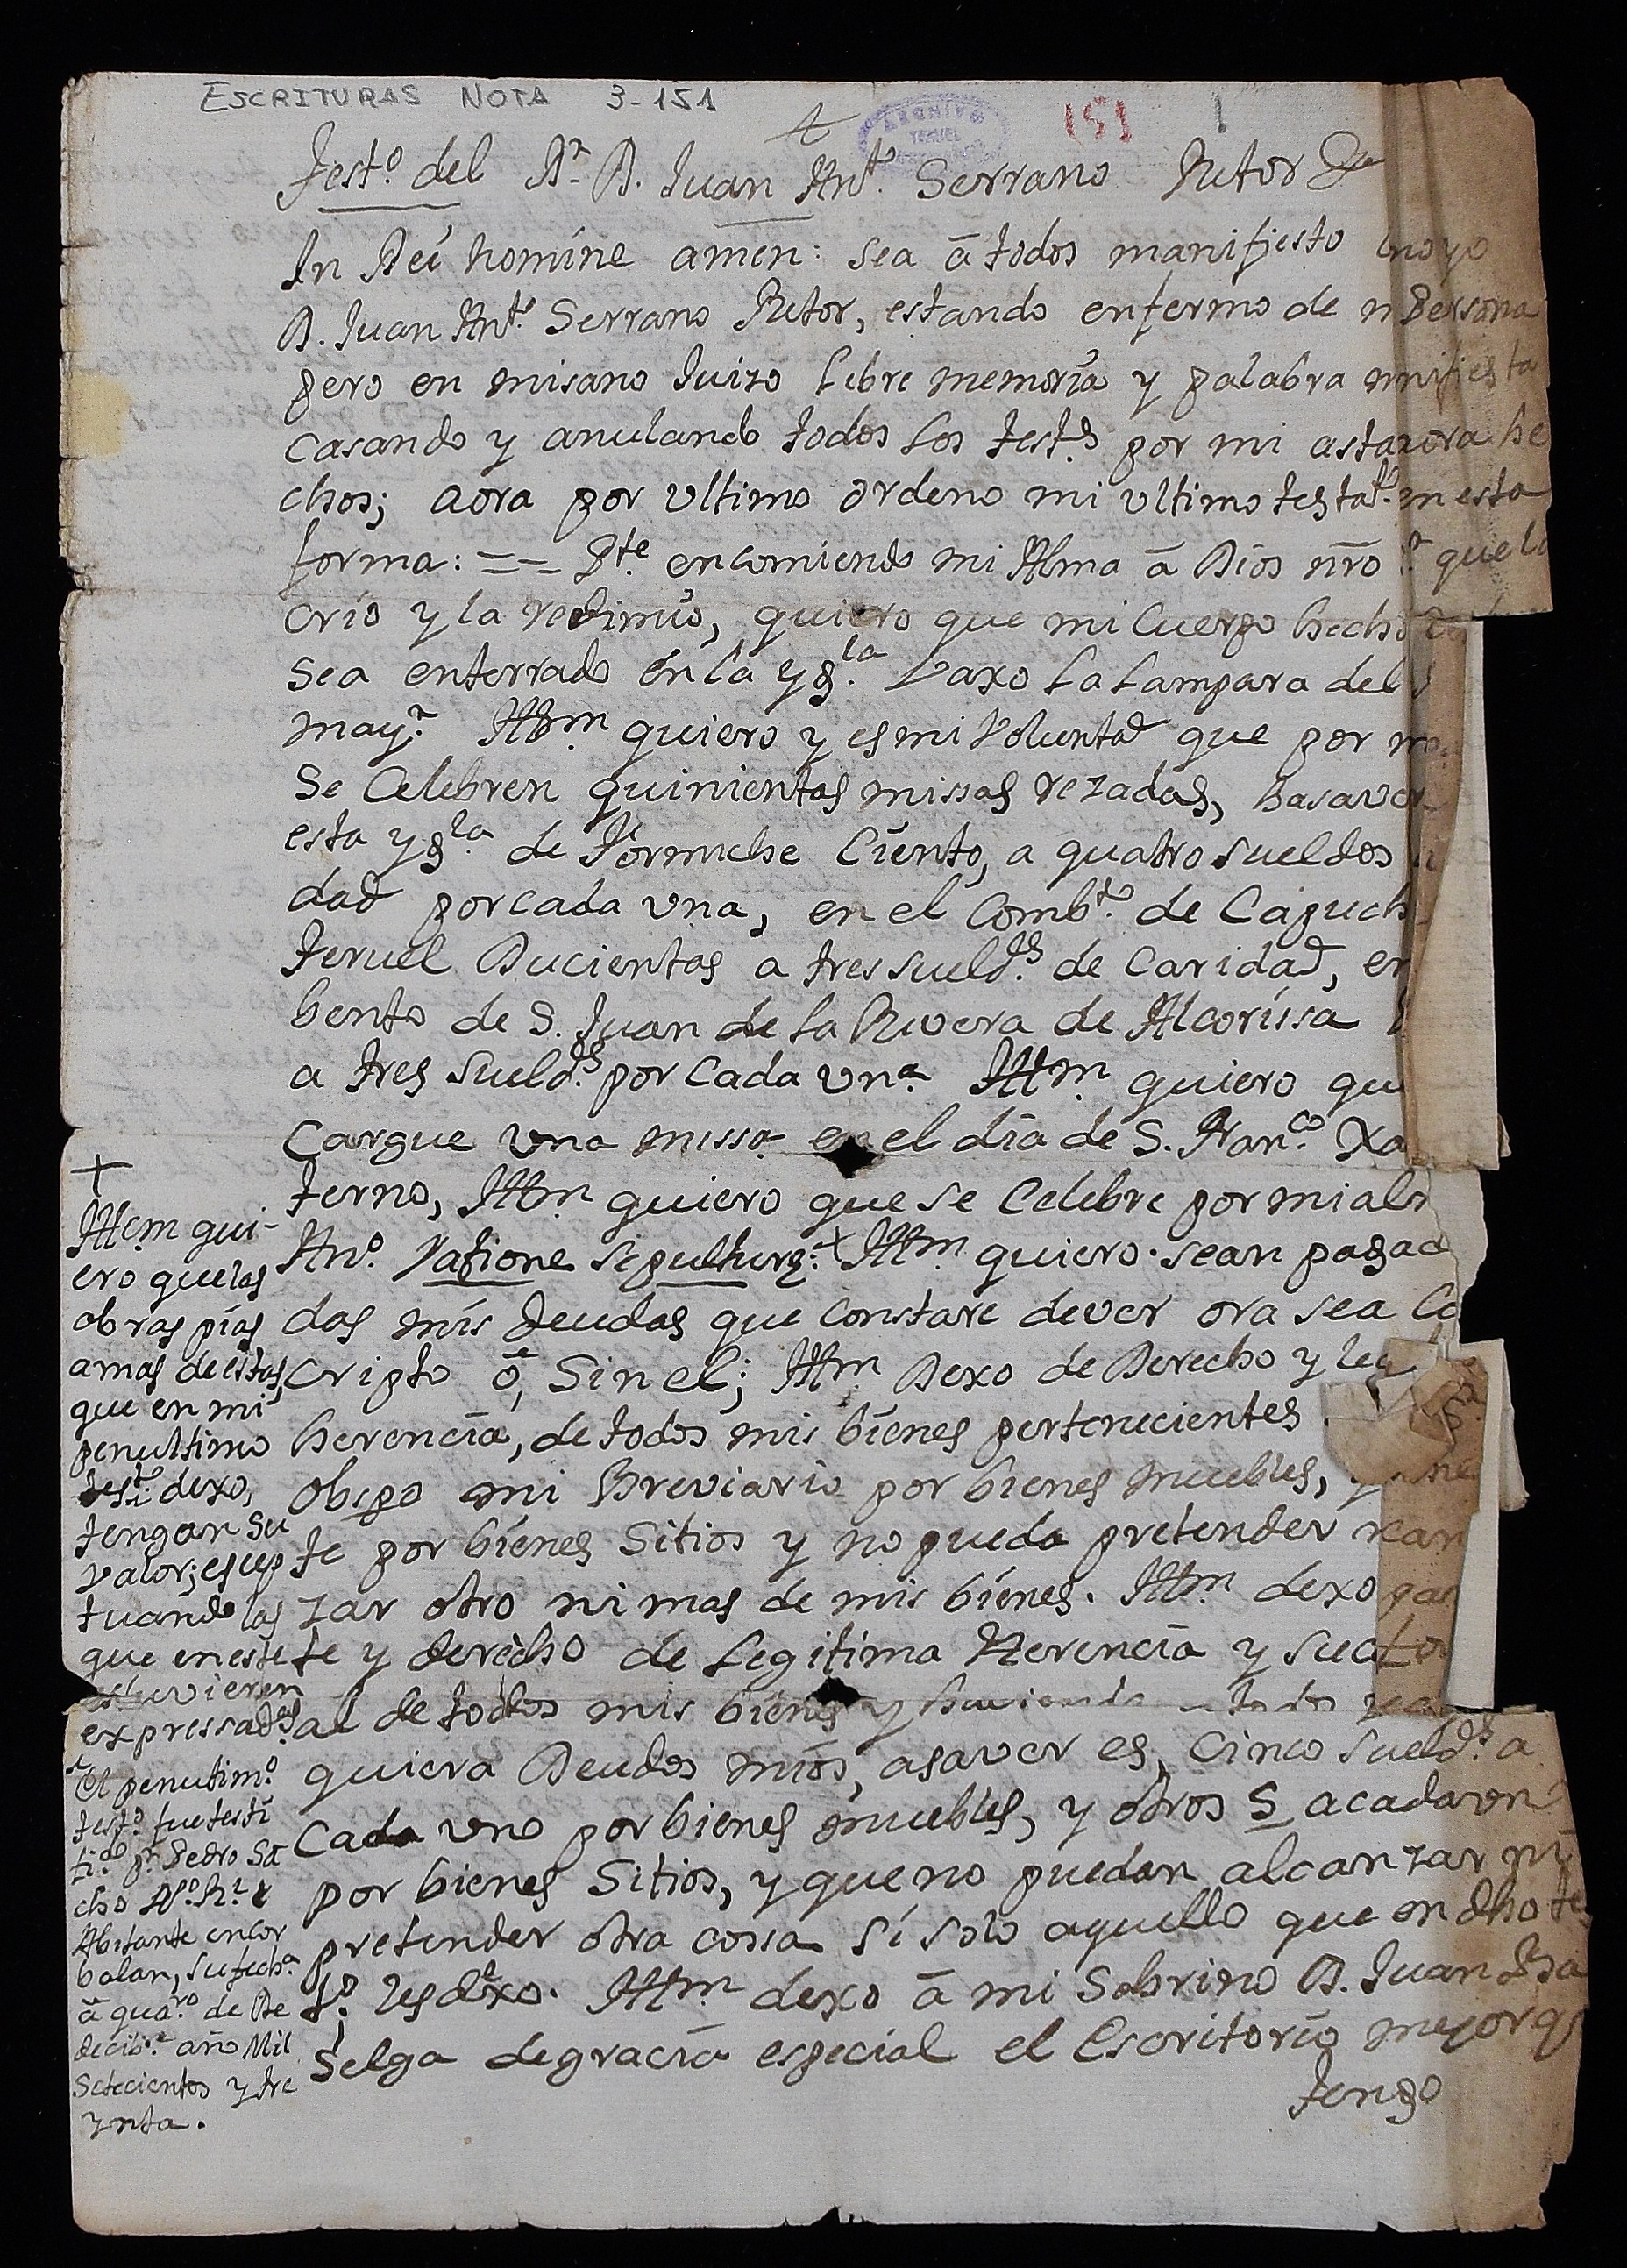 ESCRITURAS NOTA 3-151
ARCHIVO TERUEL
151 1
Test.º del Dr. D. Juan Ant.º Serrano Retor
In Dei nomine amen: sea â todos manifiesto yo
D. Juan Ant.º Serrano Retor, estando enfermo de Persona
pero en misano Juizo libre memoria y palabra
casando y anulando todos los test.s por mi asta aora he
chos; aora por ultimo ordeno mi ultimo testa.to en esta
forma: == P.te encomiendo mi Alma â Dios nro que la
crio y la redimio, quiero que mi Cuerpo hecho
sea enterrado en la ygª.la vaxo la Lampara del
may.r Ittm quiero y es mi Volunta.d que por
Se Celebren quinientas missas rezadas, asaver
esta yg.la de Formiche Ciento, a quatro sueldos
dad por cada vna, en el Comb.to de Capuch
Teruel Ducientas a tres sueld.s de caridad, en
bento de S. Juan de la Rivera de Alcorissa
a tres sueld.s por cada vn.a Ittm quiero qu
Cargue vna missa en el dia de S. Fran.co Xa
terno, Ittm quiero que se Celebre por mi al
An.º Ratione sepulturę. + Ittm quiero sean pagad
das mis deudas que constare dever ora sea
cripto ô, Sin el; Ittm Dexo de Derecho y leg
herencia, de todos mis bienes pertenecientes
obispo mi Breviario por bienes muebles,
te por bienes Sitios y no pueda pretender
zar otro ni mas de mis bienes. Ittm dexo
te y derecho de Legitima Herencia y
al de todos mis bienes y todos
quiera Deudos mios, asaver es, Cinco sueld.s a
Cada vno por bienes muebles, y otros 5 a cada vn
por bienes Sitios, y que no puedan alcanzar ni
pretender otra cossa si solo aquello que en dho tes
t.º les dexo. Ittm dexo â mi Sobrino D. Juan
Selga de gracia especial el Escritorio mejor q
tengo
+
Ittem qui-
ero que las
obras pias
a mas de estas,
que en mi
penultimo
test.º dexo,
tengan su
valor; escep
tuando las
que en este
estuvieren
expressadas
El penutim.º
test.º fue testi
fi.do p.r Pedro Sa
cho
Abitante en Cor
balan, su fech.a
â qua.ro de De
decib.e año Mil
Setecientos y tre
ynta.